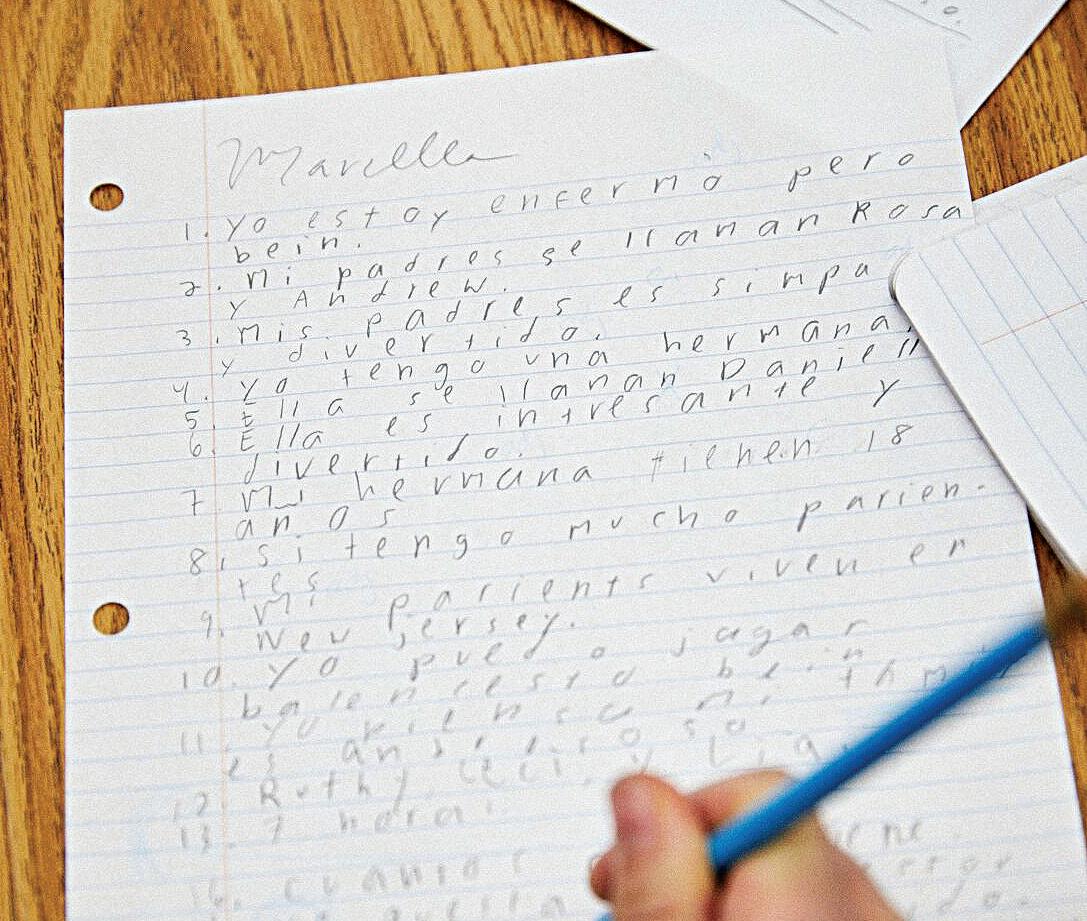 Marcella
1. Yo estoy enfermo pero
bein.
2. Mi padres se llaman Rosa
y Andrew.
3. Mis padres es simpa
y divertido.
4. Yo tengo una hermana.
5. Ella se llaman Daniell
6. Ella es intresante y
divertido.
7 Mi hermana tienen 18
an os
8. Si tengo mucho parien-
tes
9. Mi parients viven en
New jersey.
10. Yo puedo jagar
balencesto bein
11. Yo mi
es
12 Ruthy
13. 7 hora